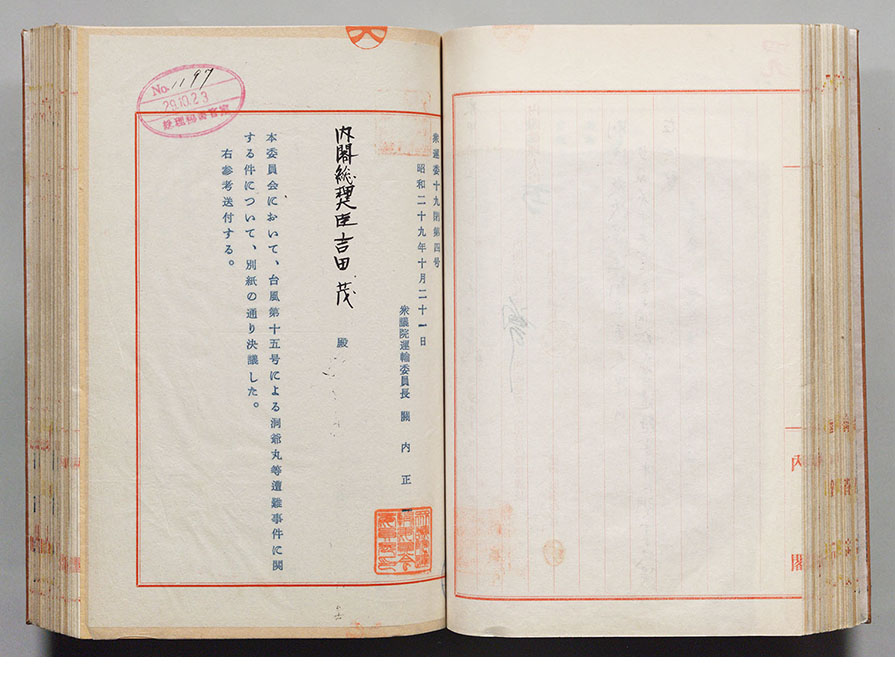 衆運委十九閉第四号
昭和二十九年十月二十一日
衆議院運輸委員長 關内正一
内閣総理大臣吉田 茂 殿
本委員会において、台風第十五号による洞爺丸等遭難事件に関
する件について、別紙の通り決議した。
右参考送付する。
No. 1197
29.10.23
内閣